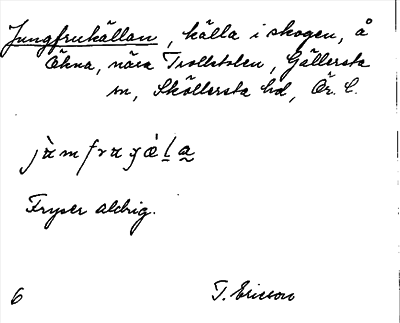 Jungfrukällan, källa i skogen, å
Ökna, nära Trollstolen, Gällersta
sn, Sköllersta hd, Ör. l.
Fryser aldrig.
6 T. Ericson